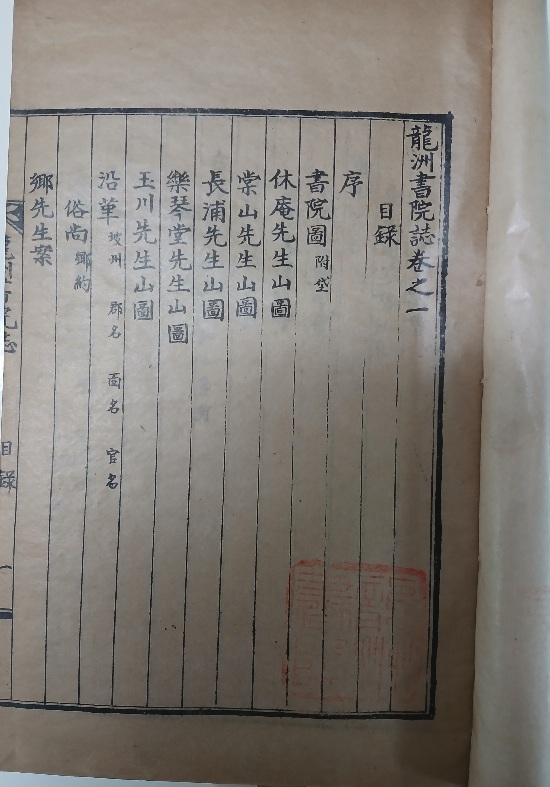 龍洲書院誌卷之一
目録
序
書院圖 附岱
休庵先生山圖
棠山先生山圖
長浦先生山圖
樂琴堂先生山圖
玉川先生山圖
沿革 坡州 郡名 面名 官名
俗尚 鄉約
鄉先生案
龍洲書院誌 目録 一